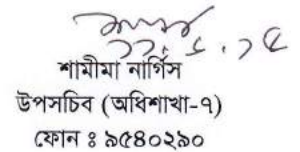 শামীমা নার্গিস
উপসচিব (অধিশাখা-৭)
ফোন ঃ ৯৫৪০২৯০